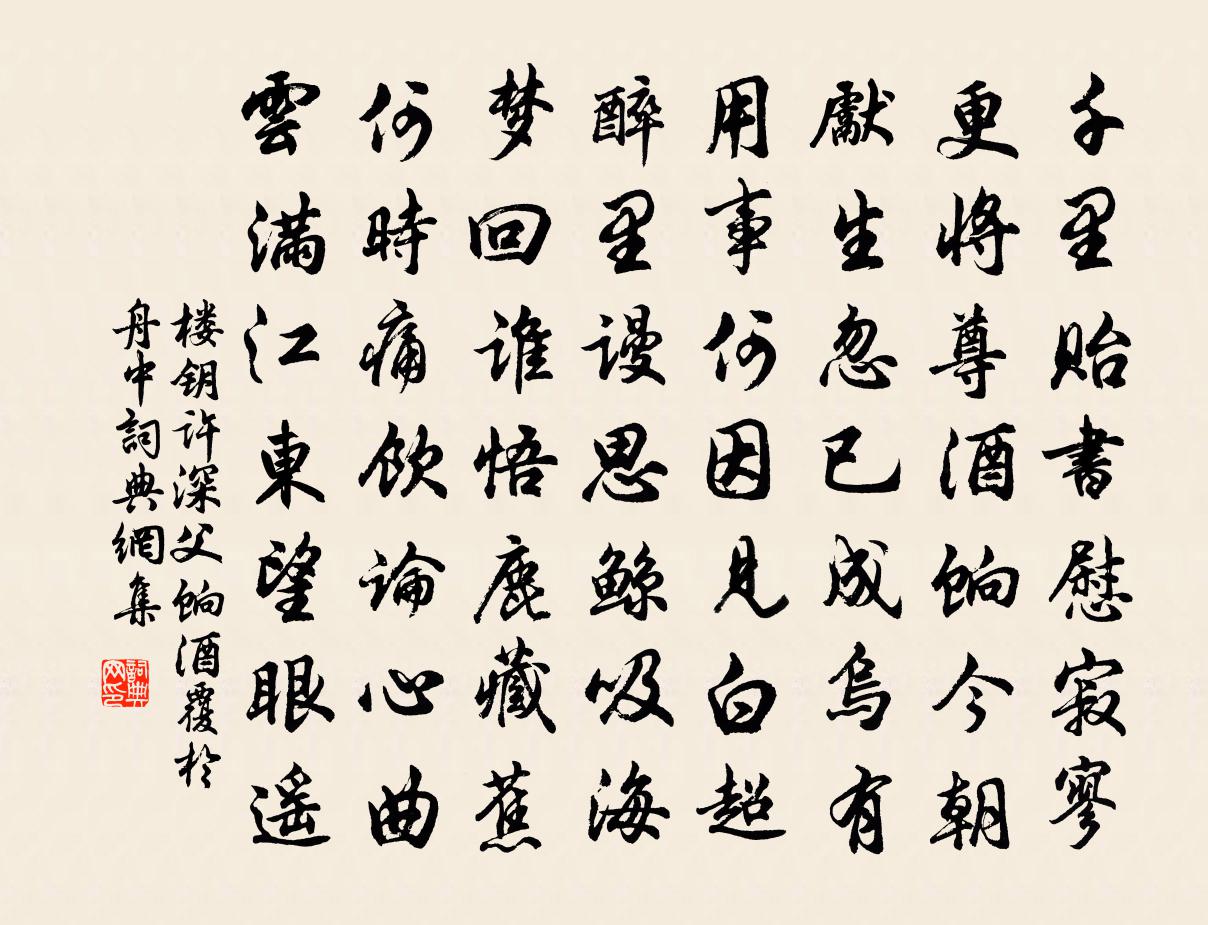 千里贻書慰寂寥
更將尊酒餉今朝
獻生忽已成烏有
用事何因見白超
醉里謾思鲸吸海
梦回谁悟鹿藏蕉
何時痛飲論心曲
雲滿江東望眼遥
楼钥许深父餉酒覆於
舟中詞典網集
詞典网印